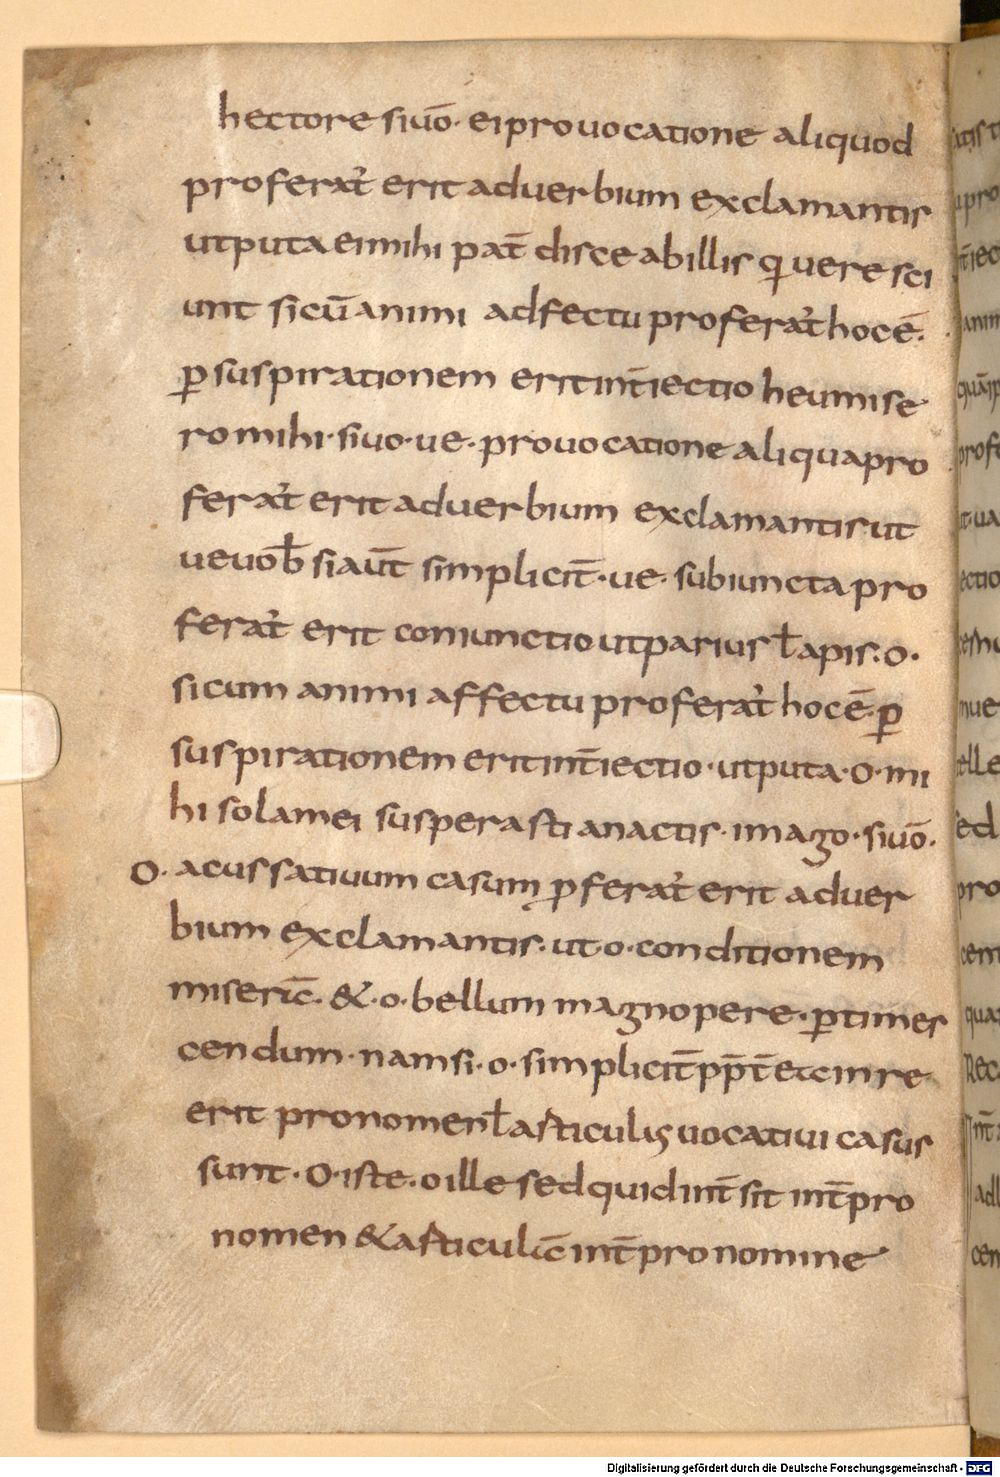 hectore siuō· ei prouocatione aliquod
proferat᷑ erit aduerbium exclamantis
utputa ei mihi pat̄ disce ab illis qi uere sci
unt si cū animi adfectu proferat᷑ hoc ē·
ꝑ suspirationem erit int̄iectio heu mise
ro mihi· siuo· ue· prouocatione aliqua pro
ferat᷑ erit aduerbium exclamantis· ut
ue uob̄ si aut̄ simplicit̄· ue· subiuncta pro
ferat᷑ erit coniunctio ut parius ł apis· o·
si cum animi affectu proferat᷑ hoc ē· ꝑ
suspirationem erit int̄iectio· utputa· o· mi
hi sola mei susperasti anactis· imago· siuō·
o· acussatiuum casum ꝓferat᷑ erit aduer
bium exclamantis· ut· o· conditionem
miseric̄· & · o· bellum magnopere· ꝑtimes
cendum· nam si· o· simplicit̄ pp̄t̄ etc in re
erit pronomen ł asticulis uocatiui casus
sunt· O· iste· o ille sed quid int̄ sit int̄ pro
nomen & asticulū int̄ pronomine
Digitalisierung gefördert durch die Deutsche Forschungsgemeinschaft - DFG